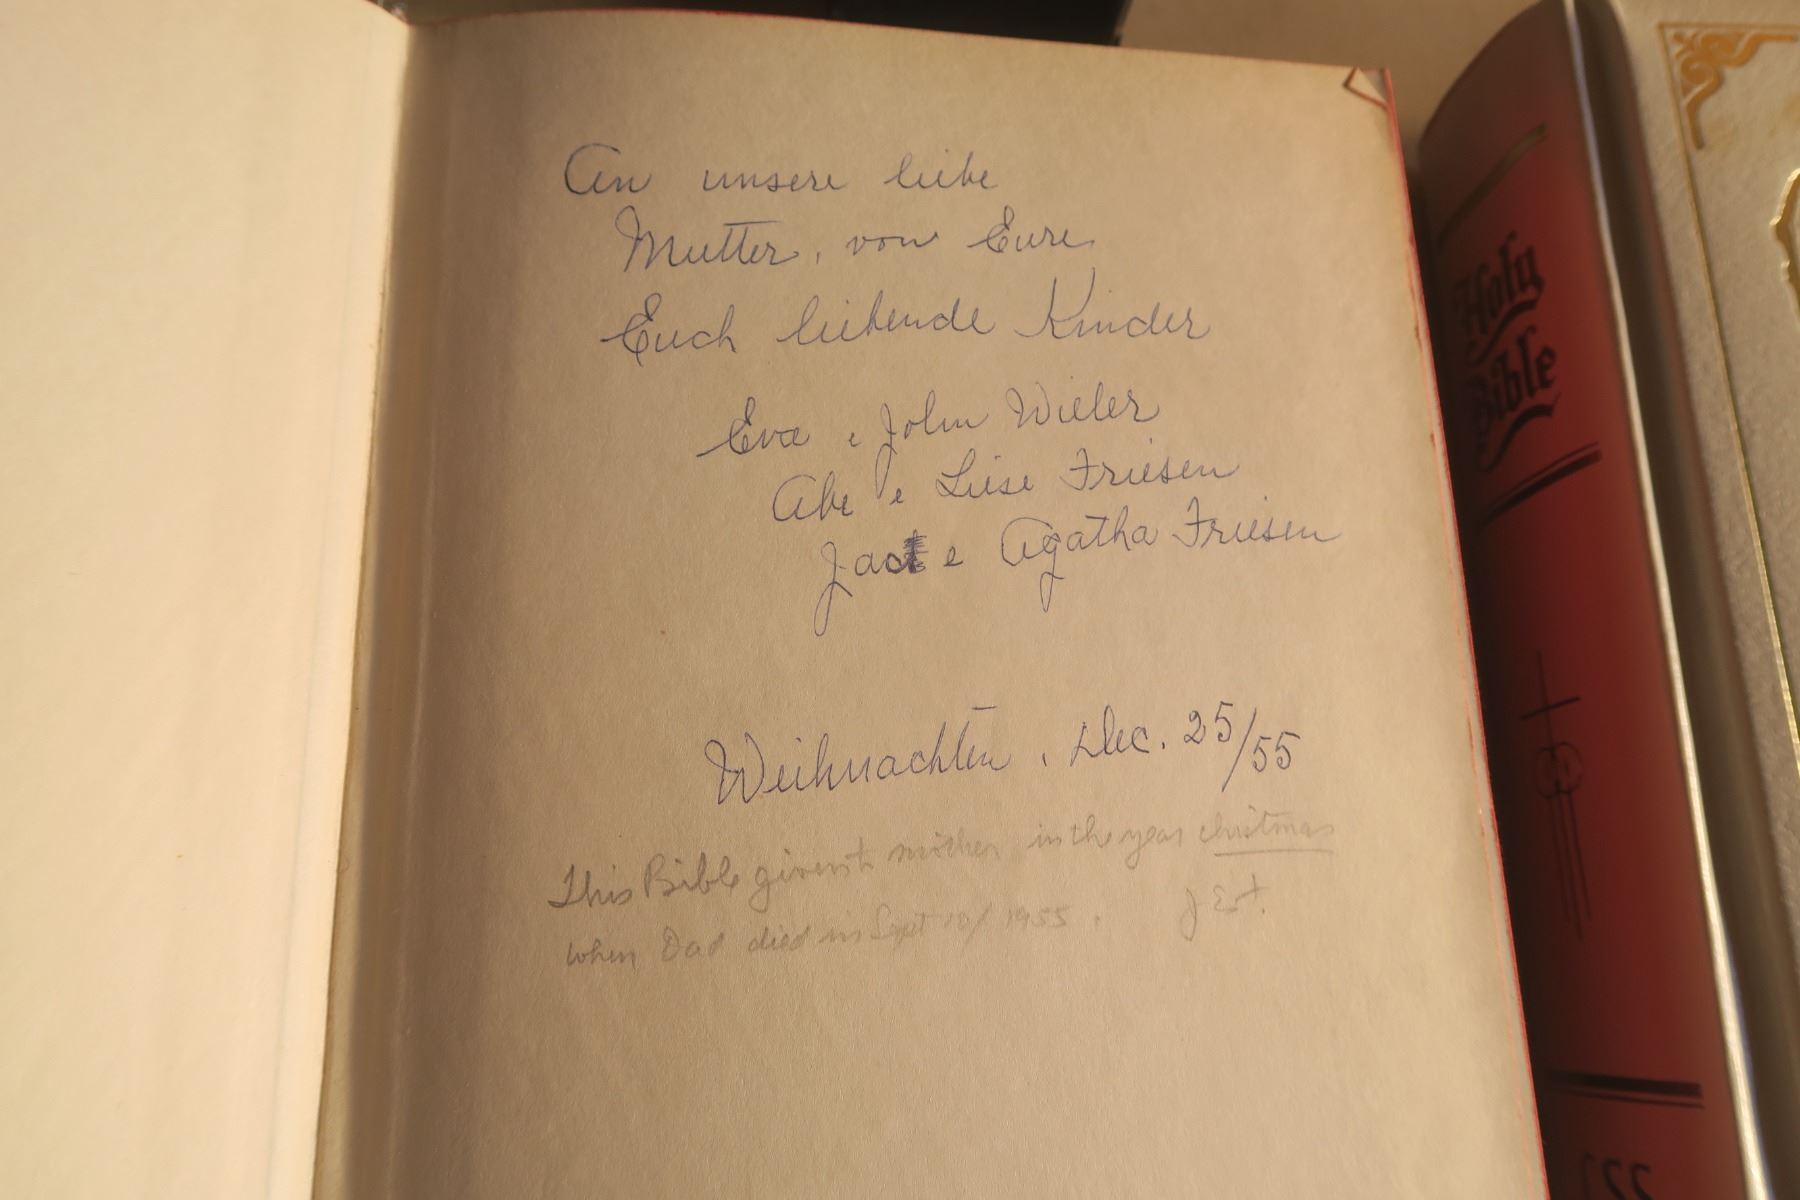 An unsere liebe
Mutter, von Eure
Euch liebende Kinder
Eva & John Wieler
Abe & Liese Friesen
Jack & Agatha Friesen
Weihnachten, Dec. 25/55
This Bible given mother in the year christmas
when Dad died in Sept 10/ 1955.
Holy
Bible